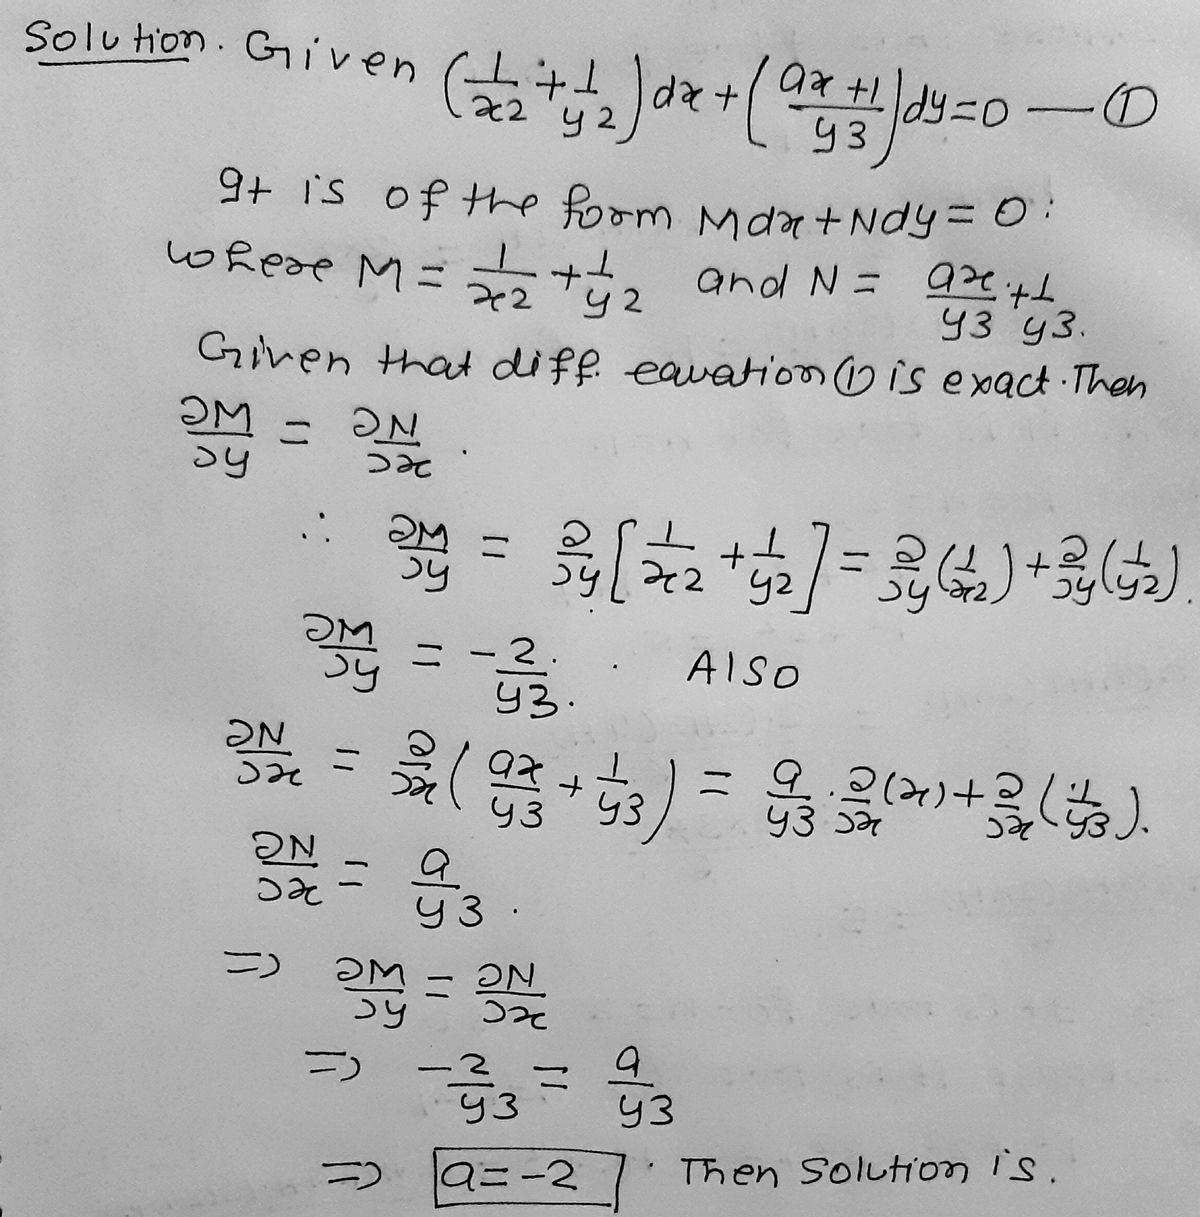 Solution. Given (1/x2 + 1/y2) dx + (ax+1/y3) dy = 0 — ①
It is of the form Mdx + Ndy = 0.
where M = 1/x2 + 1/y2 and N = ax/y3 + 1/y3.
Given that diff. equation ① is exact. Then
∂M/∂y = ∂N/∂x.
∴ ∂M/∂y = ∂/∂y [1/x2 + 1/y2] = ∂/∂y (1/x2) + ∂/∂y (1/y2).
∂M/∂y = -2/y3. Also
∂N/∂x = ∂/∂x (ax/y3 + 1/y3) = a/y3 · ∂/∂x (x) + ∂/∂x (1/y3).
∂N/∂x = a/y3.
=> ∂M/∂y = ∂N/∂x
=> -2/y3 = a/y3
=> a = -2. Then Solution is.